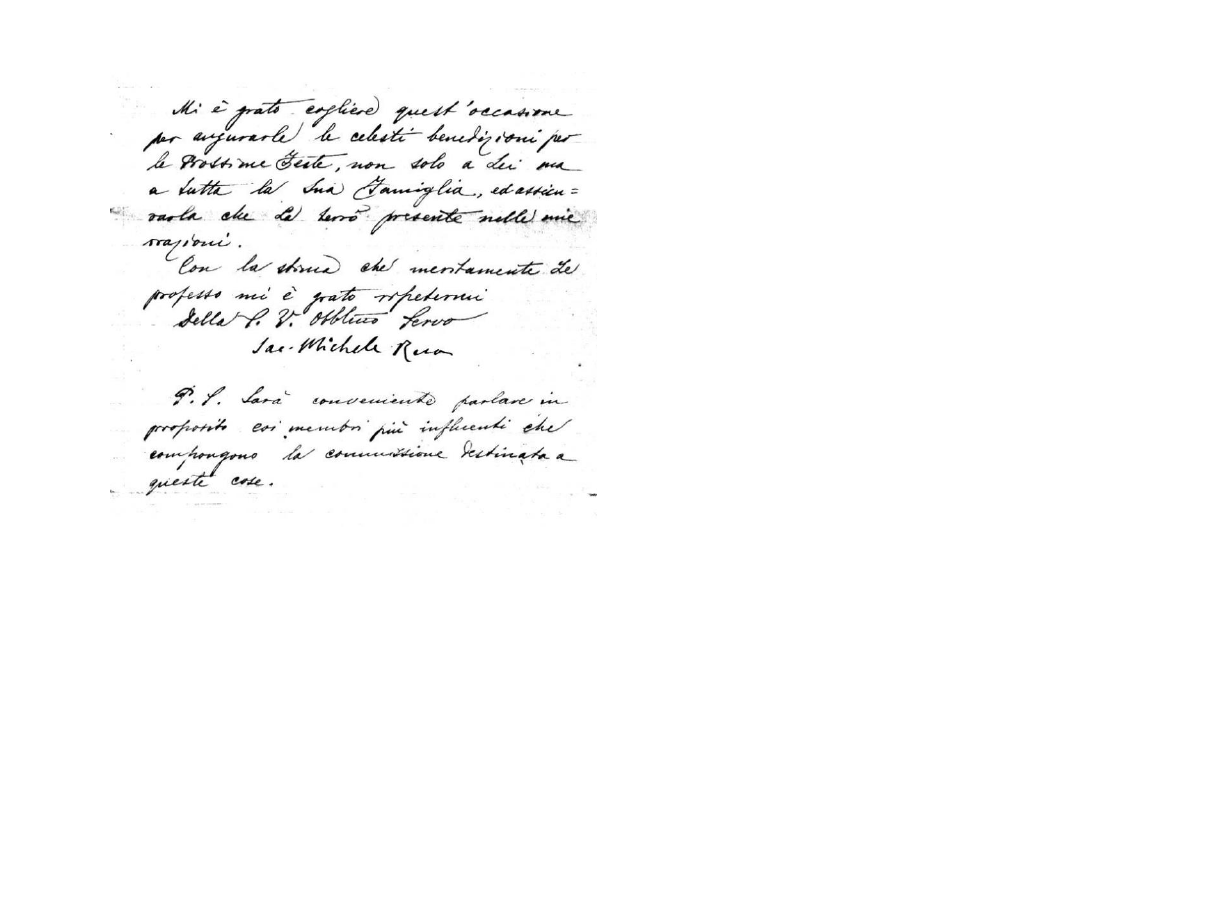 Mi è grato cogliere quest'occasione
per augurarle le celesti benedizioni per
le Prossime Feste, non solo a Lei ma
a tutta la Sua Famiglia, ed assicu=
rarla che La terrò presente nelle mie
orazioni.
Con la stima che meritamente Le
professo mi è grato ripetermi
Della S. V. Obblmo Servo
Sac. Michele Rua
P. S. Sarà conveniente parlare in
proposito coi membri più influenti che
compongono la commissione destinata a
queste cose.